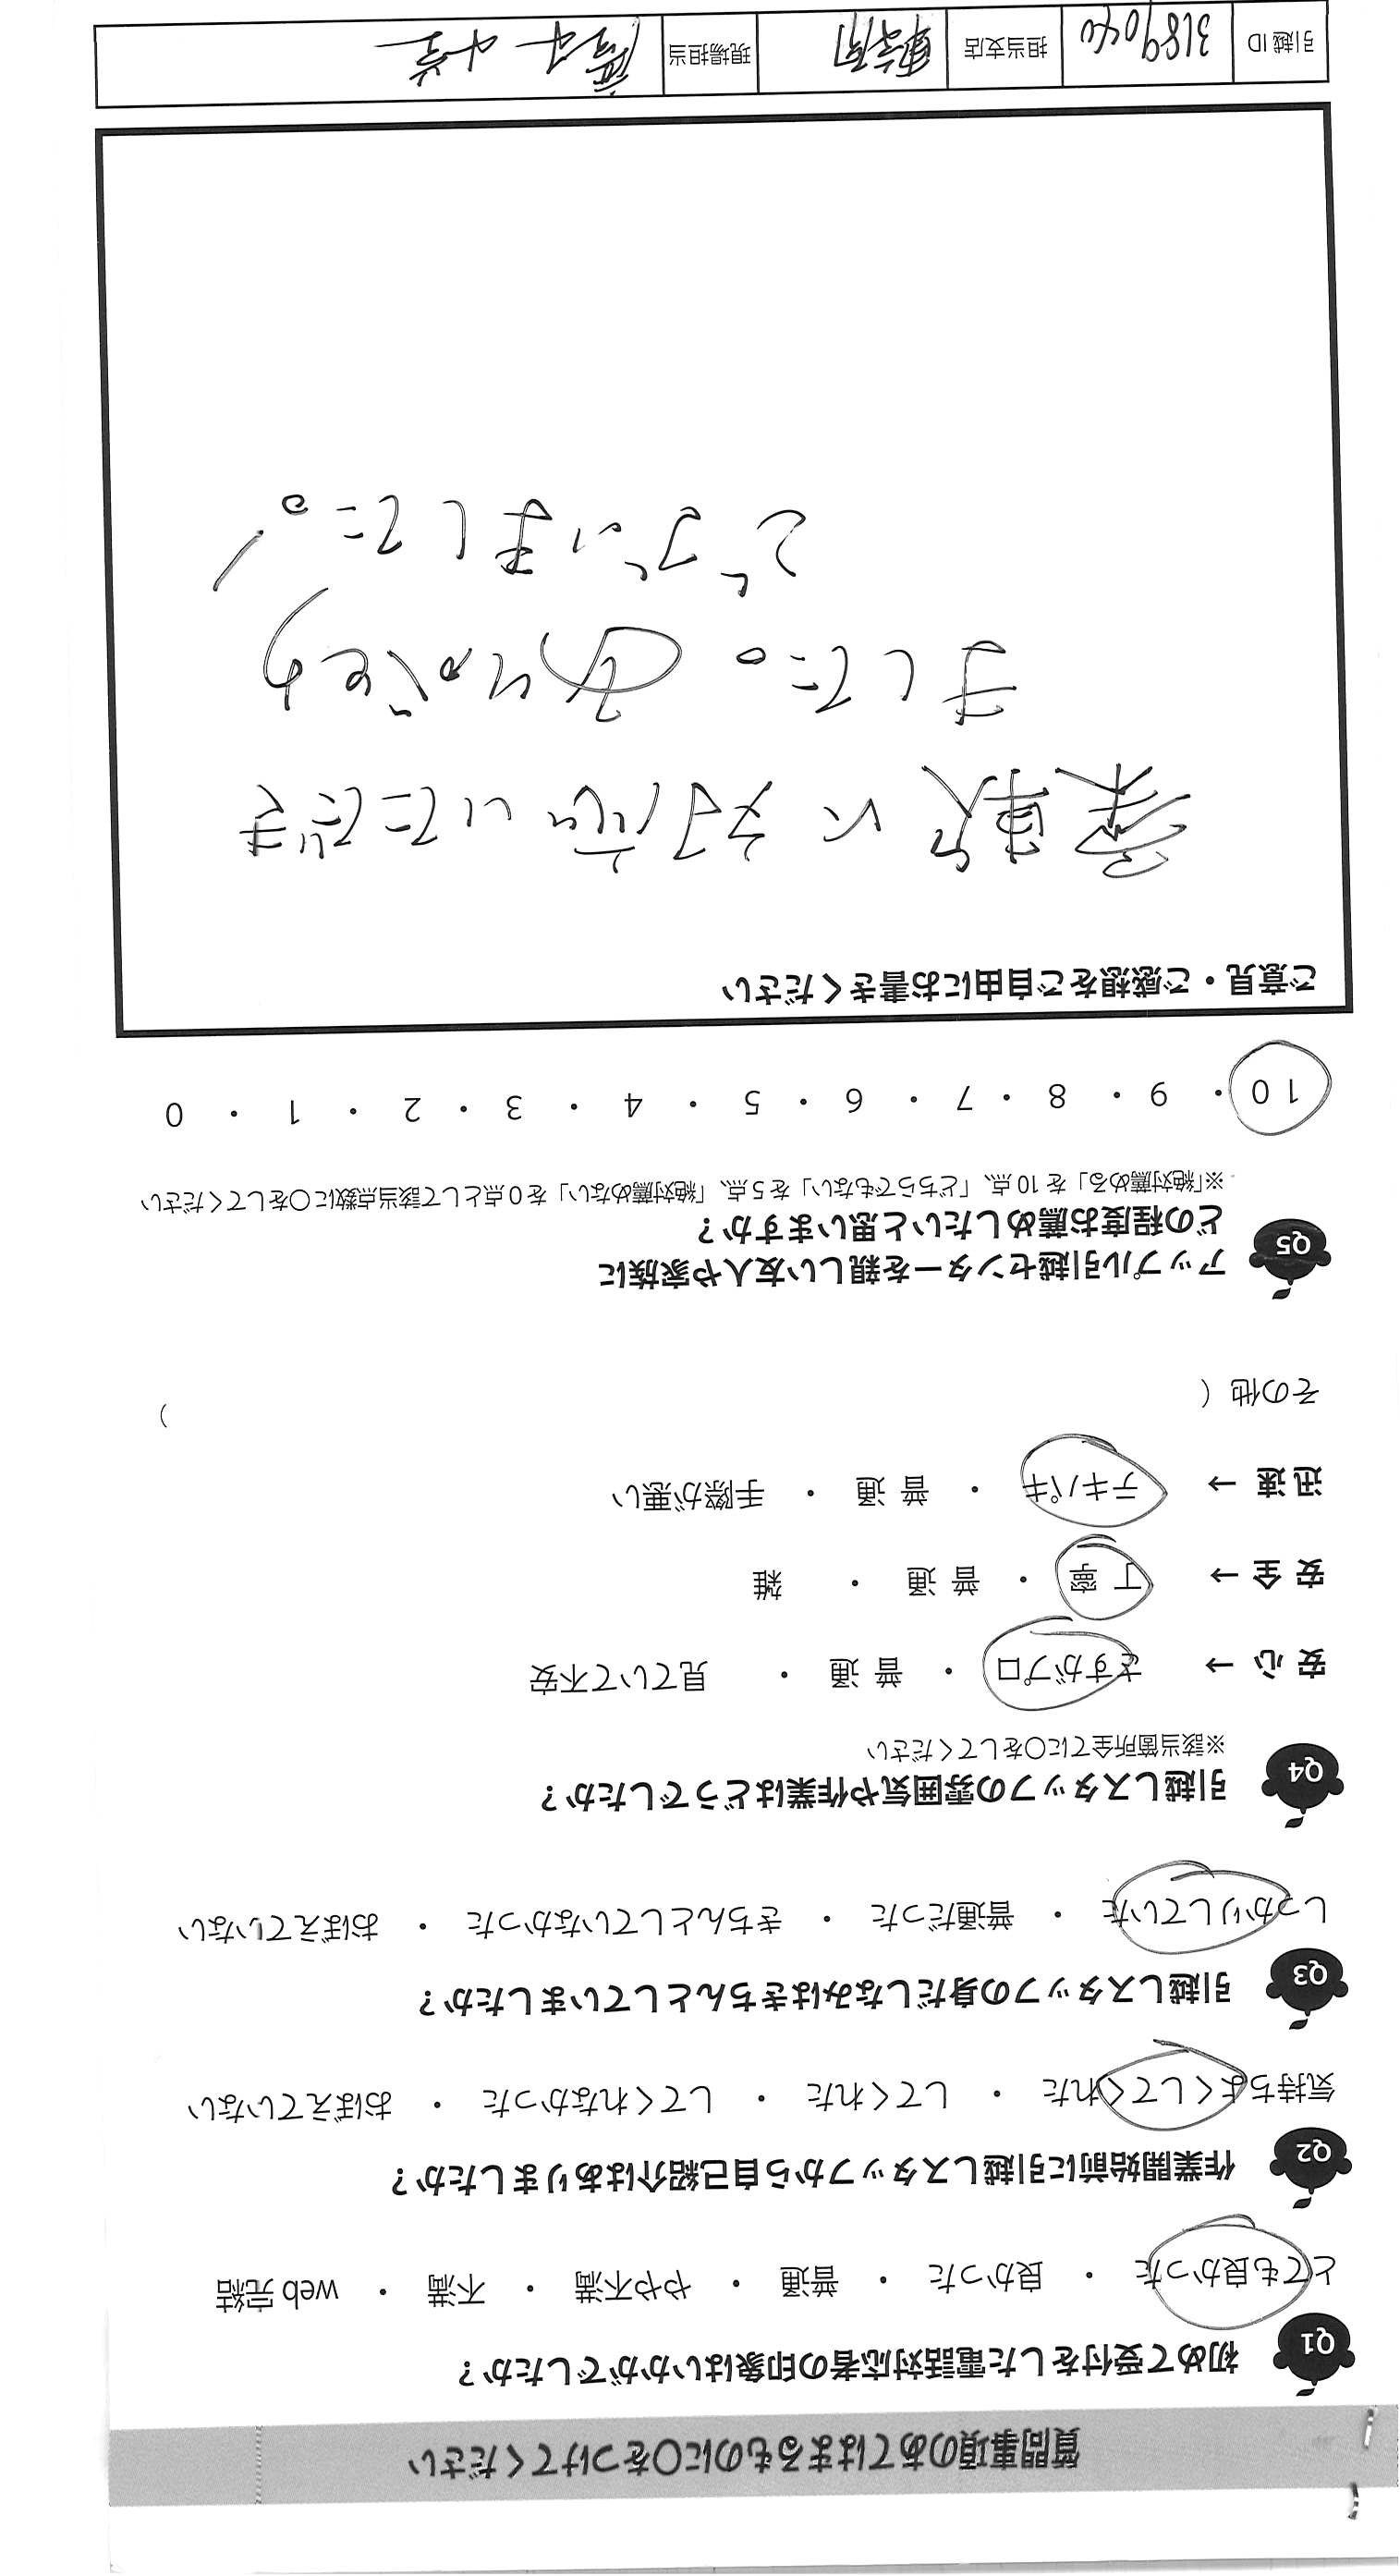 質問事項のあてはまるものに〇をつけてください
Q1 初めて受付をした電話対応者の印象はいかがでしたか？
とても良かった ・ 良かった ・ 普通 ・ やや不満 ・ 不満 ・ web 完結
Q2 作業開始前に引越しスタッフから自己紹介はありましたか？
気持ちよくしてくれた ・ してくれた ・ してくれなかった ・ おぼえていない
Q3 引越しスタッフの身だしなみはきちんとしていましたか？
しっかりしていた ・ 普通だった ・ きちんとしていなかった ・ おぼえていない
Q4 引越しスタッフの雰囲気や作業はどうでしたか？
※該当箇所全てに〇をしてください
安 心 → さすがプロ ・ 普 通 ・ 見ていて不安
安 全 → 丁 寧 ・ 普 通 ・ 雑
迅 速 → テキパキ ・ 普 通 ・ 手際が悪い
その他（ ）
Q5 アップル引越センターを親しい友人や家族に
どの程度お薦めしたいと思いますか？
※「絶対薦める」を 10 点、「どちらでもない」を 5 点、「絶対薦めない」を 0 点として該当点数に〇をしてください
10 ・ 9 ・ 8 ・ 7 ・ 6 ・ 5 ・ 4 ・ 3 ・ 2 ・ 1 ・ 0
ご意見・ご感想をご自由にお書きください
柔軟に対応いただき
ました。ありがとう
ございました。
引越 ID 3189040 担当支店 現場担当